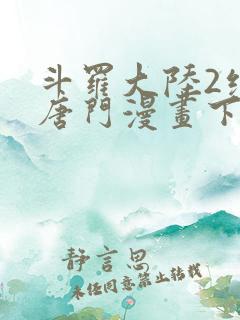 斗羅大陸2
唐門漫畫下
靜言思
未经同意禁止转载